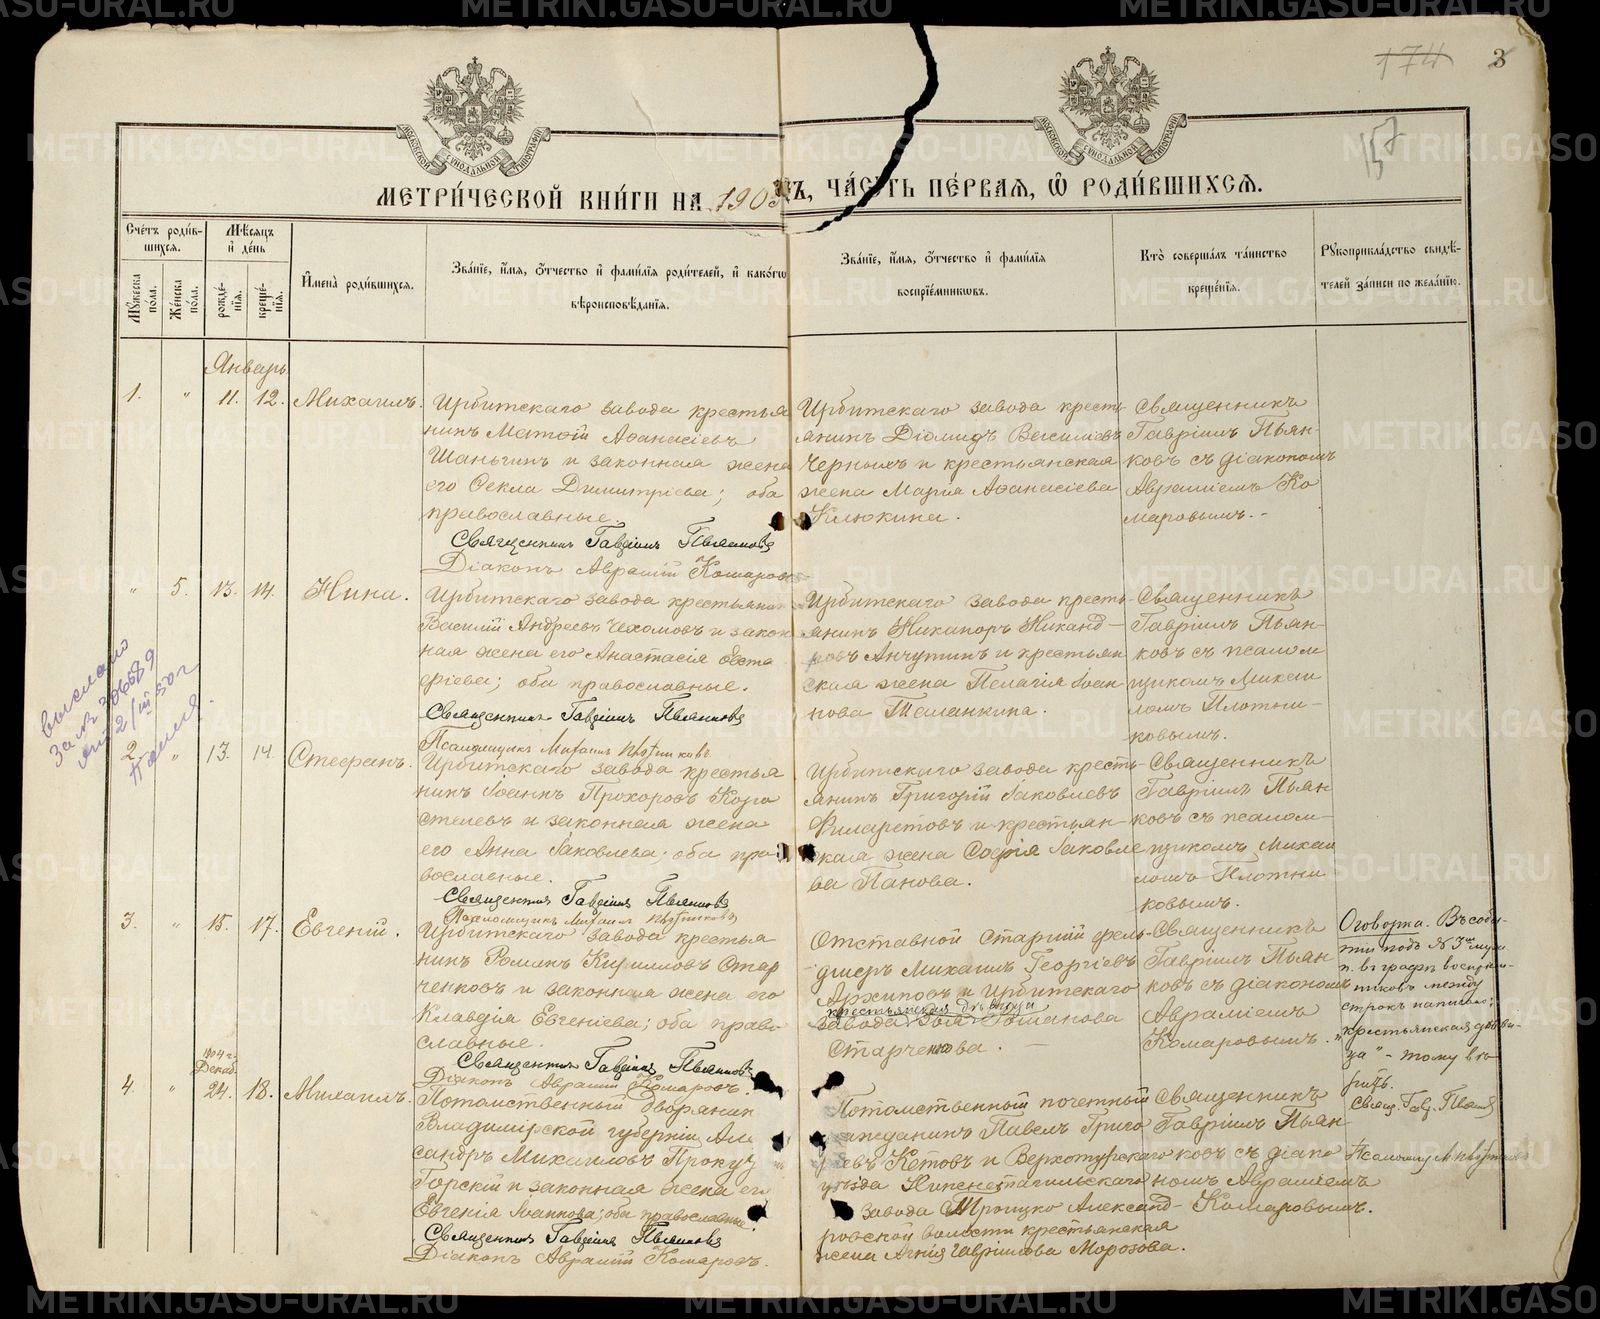 174
3
157
МЕТРИ́ЧЕСКОЙ КНИ́ГИ НА 1905
Ъ, ЧА́СТЬ ПЕ́РВАЯ, Ѡ҆ РОДИ́ВШИХСЯ.
Сче́тъ роди́в-
шихся.
Мꙋ́жеска
пола.
Же́нска
по́ла.
Мѣ́сяцъ
и҆ де́нь
рожде́-
нїя.
креще́-
нїя.
И҆мена̀ роди́вшихся.
Зва́нїе, и҆́мя, ѻ҆́тчество и҆ фами́лїя роди́телей, и҆ како́гѡ
вѣроисповѣ́данїя.
Зва́нїе, и҆́мя, ѻ҆́тчество и҆ фами́лїя
воспрїе́мникѡвъ.
Кто̀ соверша́лъ та́инство
креще́нїя.
Рꙋкоприкла́дство свидѣ́-
телей за́писи по жела́нїю.
Январь
1. " 11. 12. Михаилъ.
Ирбитскаго завода крестья
нинъ Матѳій Аѳанасіевъ
Шаньгинъ и законная жена
его Ѳекла Димитріева; оба
православные.
Священникъ Гавріилъ Пьянковъ
Діаконъ Аврамій Комаровъ
Ирбитскаго завода кресть
янинъ Діомидъ Васильевъ
Черныхъ и крестьянская
жена Марія Аѳанасіева
Клюкина.
Священникъ
Гавріилъ Пьян-
ковъ съ діакономъ
Авраміемъ Ко
маровымъ.
" 5. 13. 14. Нина.
Ирбитскаго завода крестьянинъ
Василій Андреевъ Чехомовъ и закон
ная жена его Анастасія Евста
фіева; оба православные.
Священникъ Гавріилъ Пьянковъ
Псаломщикъ Михаилъ Плотниковъ
Ирбитскаго завода кресть-
янинъ Никаноръ Никанд-
ровъ Анчутинъ и крестьян
ская жена Пелагія Іоан
нова Таланкина.
Священникъ
Гавріилъ Пьян-
ковъ съ псалом
щикомъ Михаи
ломъ Плотни-
ковымъ.
выслано
2. " 13. 14. Стефанъ.
Ирбитскаго завода крестья
нинъ Іоаннъ Прохоровъ Коро
стелевъ и законная жена
его Анна Іаковлева; оба пра
вославные.
Священникъ Гавріилъ Пьянковъ
Псаломщикъ Михаилъ Плотниковъ
Ирбитскаго завода кресть-
янинъ Григорій Іаковлевъ
Филаретовъ и крестьян-
ская жена Софія Іаковле
ва Панова.
Священникъ
Гавріилъ Пьян
ковъ съ псалом-
щикомъ Михаи
ломъ Плотни
ковымъ.
3. " 15. 17. Евгеній.
Ирбитскаго завода крестья
нинъ Романъ Кирилловъ Стар
ченковъ и законная жена его
Клавдія Евгеніева; оба право
славные.
Священникъ Гавріилъ Пьянковъ
Діаконъ Аврамій Комаровъ.
Отставной старшій фель-
дшеръ Михаилъ Георгіевъ
Архиповъ и Ирбитскаго
крестьянская дѣвица
завода Романова
Старченкова.
Священникъ
Гавріилъ Пьян
ковъ съ діакономъ
Авраміемъ
Комаровымъ.
Оговорка. Въ собы-
тіи подъ № 3мъ муж.
п. въ графѣ воспріем-
никовъ между
строкъ написано:
"крестьянская дѣви-
ца" - тому вѣ
рить.
Свящ. Гавр. Пьянк
1904 г.
Декаб.
4. " 24. 18. Михаилъ.
Потомственный дворянин
Владимірской губерніи Але
сандръ Михаиловъ Прокуд
Горскій и законная жена его
Евгенія Іоаннова; оба православные.
Священникъ Гавріилъ Пьянковъ
Діаконъ Аврамій Комаровъ.
Потомственный почетный
гражданинъ Павелъ Григо
рьевъ Кетовъ и Верхотурскаго
уѣзда Нижнетагильскаго
завода Троицко Александ-
ровской волости крестьянская
жена Агнія Гавріилова Морозова.
Священникъ
Гавріилъ Пьян-
ковъ съ діако
номъ Авраміемъ
Комаровымъ.
METRIKI.GASO-URAL.RU